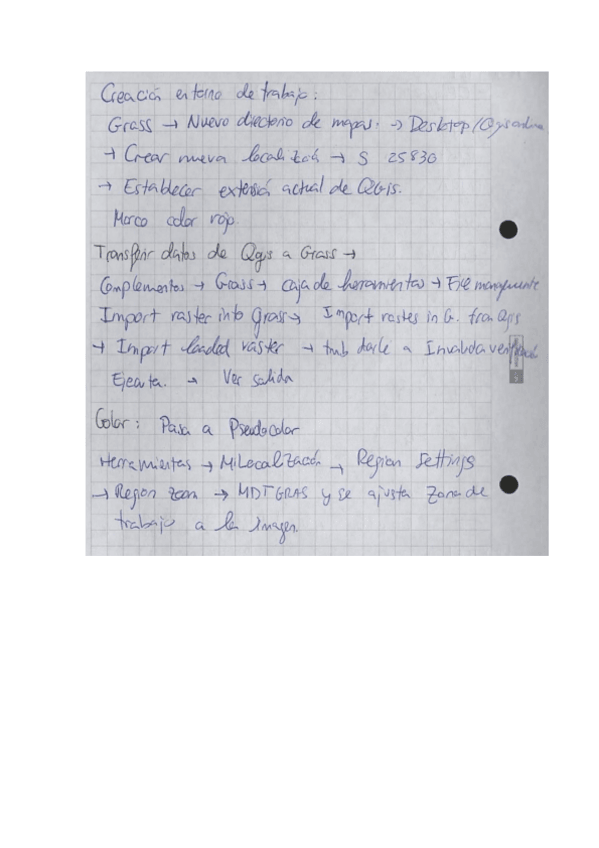 Creación entorno de trabajo:
Grass → Nuevo directorio de mapas. → Desktop/Qgis
→ Crear nueva → S 25830
→ Establecer extensió actual de QGis.
Marco color rojo.
Transferir datos de Qgis a Grass →
Complementos → Grass → caja de herramientas →
Import raster into Grass → Import raster in G. from Qgis
→ Import loaded raster → tmb darle a Invalida
Ejecuta. → Ver salida
Color: Pasa a Pseudocolor
Herramientas → MiLocalización → Region Settings
→ Region zoom → MDTGRAS y se ajusta zona de
trabajo a la imagen.